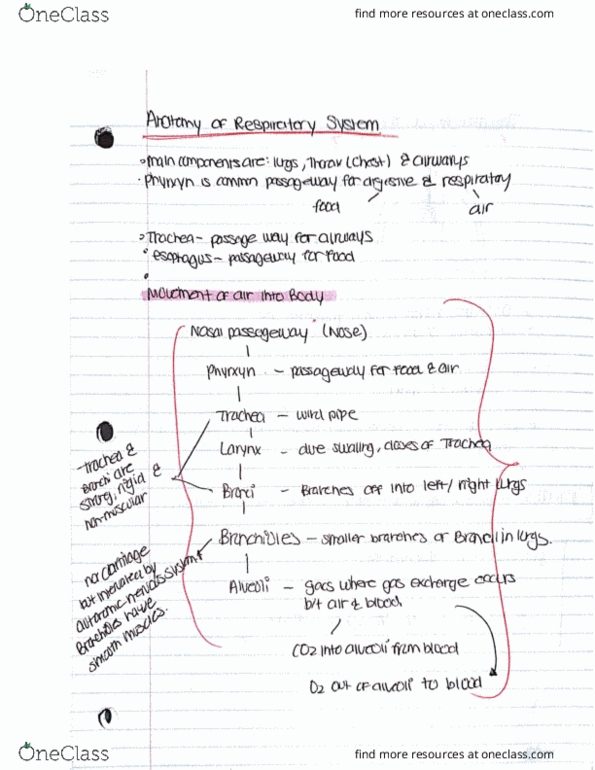 OneClass
find more resources at oneclass.com
Anatomy of Respiratory System
• main components are: lungs, Thorax (chest) & airways
• Phyrxyn is common passageway for digestive & respiratory
food
air
• Trachea - passage way for airways
• esophagus - passageway for food
Movement of air into Body
Nasal passageway (Nose)
Phyrxyn - passageway for food & air
Trachea - wind pipe
Larynx - swaling, closes of Trachea
Branci - Branches off into left/right lungs
Branchioles - smaller branches of Branci in lungs.
Alveoli - where gas exchange occurs
b/t air & blood
CO2 into alveoli from blood
O2 out of alveoli to blood
Trachea &
Branchi are
strong, rigid &
non-muscular
no
but innervated by
autonomic nervous system
Branchioles have
smooth muscles.
OneClass
find more resources at oneclass.com